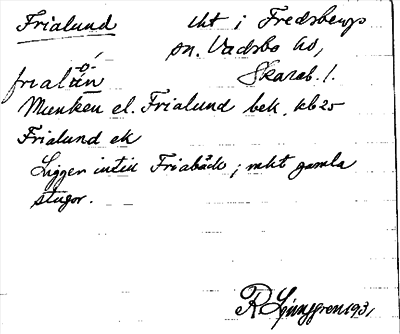 Frialund
lht i Fredsbergs
sn. Vadsbo hd,
Skarab. l.
frialún
Munken el. Frialund bek. kb 25
Frialund ek
Ligger intill Friabäck; mkt gamla
stugor.
R Ljunggren 1931